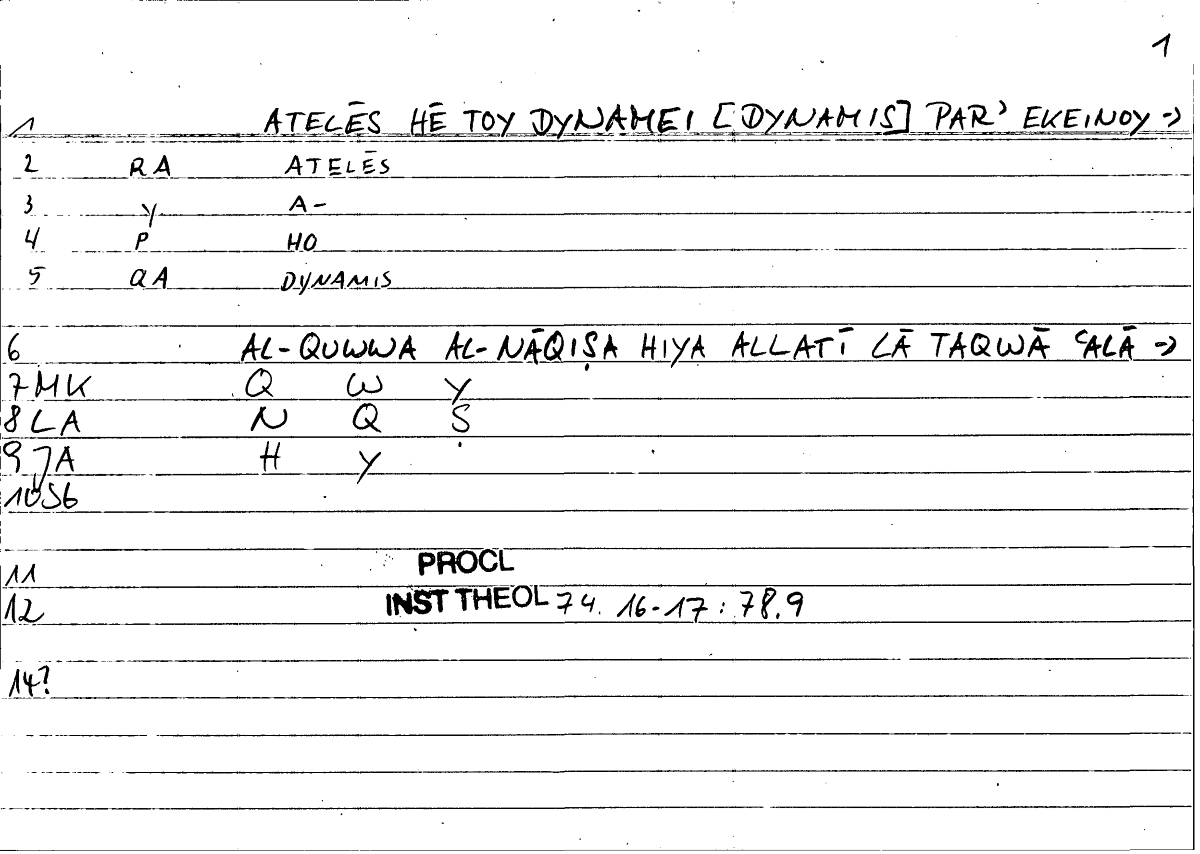 1
1 ATELĒS HĒ TOY DYNAMEI [DYNAMIS] PAR' EKEINOY →
2 RA ATELĒS
3 Y A-
4 P HO
5 QA DYNAMIS
6 AL-QUWWA AL-NĀQIṢA HIYA ALLATĪ LĀ TAQWĀ ʿALĀ →
7 MK Q W Y
8 LA N Q Ṣ
9 JA H Y
10 S6
11 PROCL
12 INST THEOL 74. 16-17 : 78.9
14?